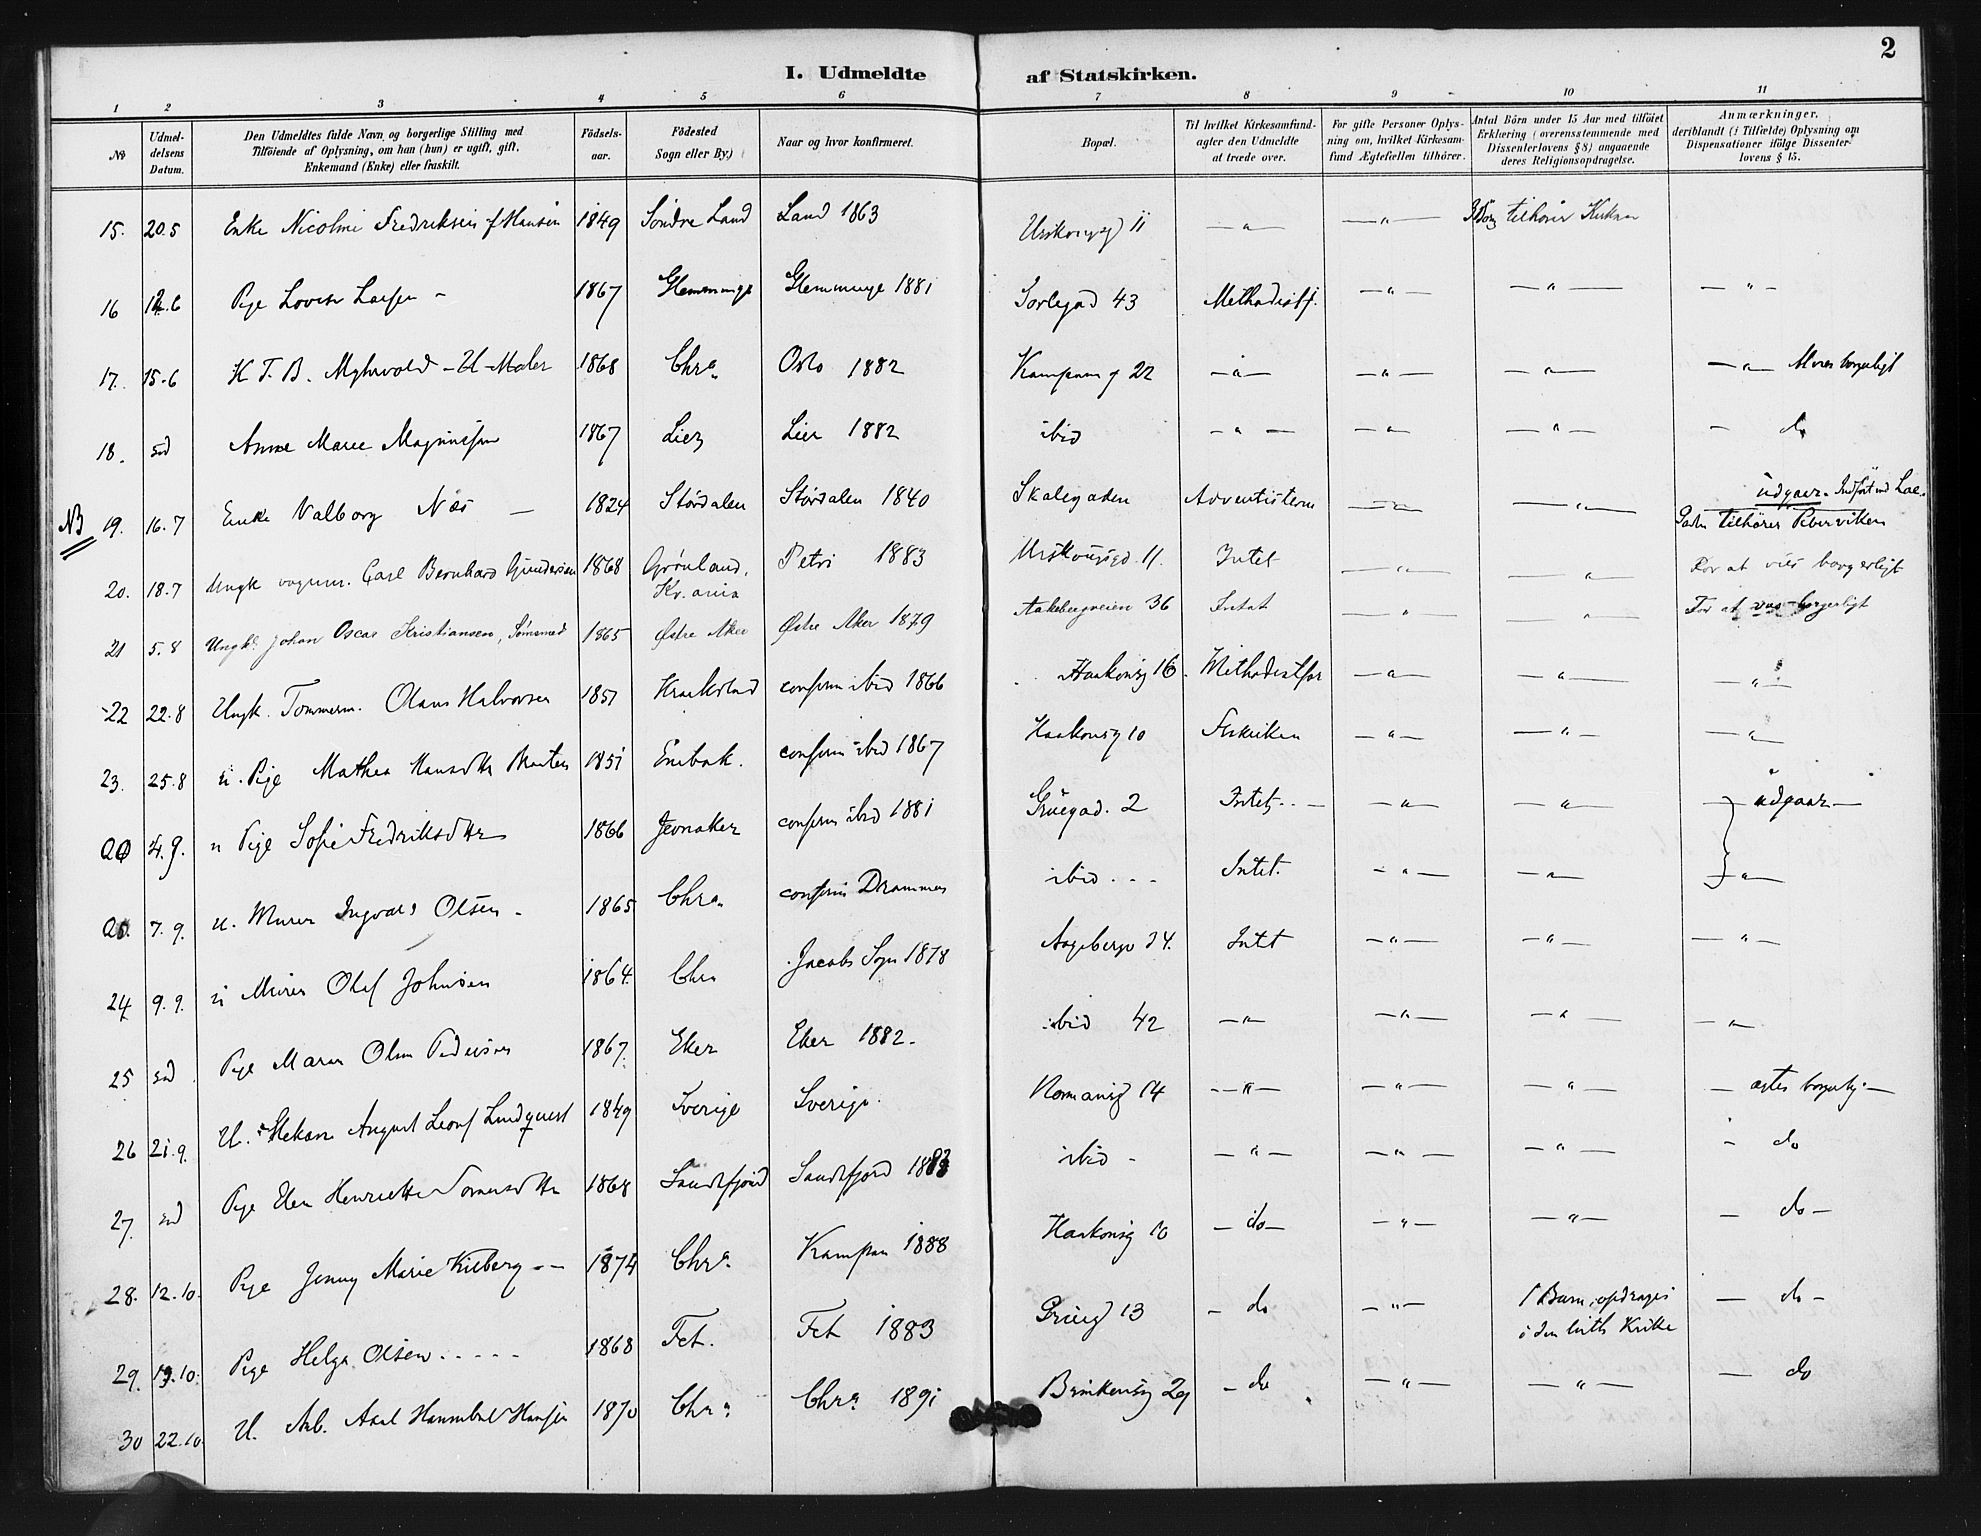 2
I. Udmeldte af Statskirken.
1 2 3 4 5 6 7 8 9 10 11
No
Udmeldelsens Datum.
Den Udmeldtes fulde Navn og borgerlige Stilling med Tilföiende af Oplysning, om han (hun) er ugift, gift, Enkemand (Enke) eller fraskilt.
Födselsaar.
Födested Sogn eller By.)
Naar og hvor konfirmeret.
Bopæl.
Til hvilket Kirkesamfund agter den Udmeldte at træde over.
For gifte Personer Oplysning om, hvilket Kirkesamfund Ægtefællen tilhörer.
Antal Börn under 15 Aar med tilföiet Erklæring (overensstemmende med Dissenterlovens § 8) angaaende deres Religionsopdragelse.
Anmærkninger, deriblandt (i Tilfælde) Oplysning om Dispensationer ifölge Dissenterlovens § 15.
15. 20.5 Enke Nicoline Fredriksen f Hansen 1849 Söndre Land Land 1863 11 — " — — " — tilhörer Kirken
16 12.6 Pige Lovise Larsen – 1867 Glemminge Glemminge 1881 Sorlegad 43 Methodistf. — " — — " — — " —
17. 15.6 K T. B. Myhrvold – U – Maler 1868 Chr.a Oslo 1882 Kampeng 22 — " — — " — — " — — " — borgerligt
18. ed Anne Marie Magnussen 1867 Lier Lier 1882 ibid — " — — " — — " — – do
NB 19. 16.7 Enke Valborg Næs — 1824 Stördalen Stördalen 1840 Skalegaden Adventisterne — " — — " — udgaar. Indfört ved
tilhörer Pibervikens
20. 18.7 Ungk vognm. Carl Bernhard Gundersen 1868 Grönland, Kr.ania Petri 1883 Urskougsgd. 11. Intet — " — — " — For at vies borgerligt
21 5.8 Ungk. Johan Oscar Kristiansen, 1865 Østre Aker Østre Aker 1879 Aakebergveien 36 Intet — " — — " — For at vies borgerligt
22 22.8 Ungk. Tømmerm. Olaus Halvorsen 1851 Kraakstad confirm ibid 1866 Haakonsg 16. Methodistfor — " — — " — — " —
23. 25.8 u. Pige Mathea Hansdtter 1851 Enebak. confirm ibid 1867 Haakonsg 10 Frikirken — " — — " — — " —
4.9. u Pige Sofie Fredriksdtter 1866 Jevnaker confirm ibid 1881 Grüegad. 2 Intet. . — — " — — " — — udgaar —
7.9. u. Murer Ingvald Olsen – 1865 Chr.a confirm Drammen ibid . - - Intet. — " — — " — — " —
24 9.9. u Murer Olaf Johnsen 1864. Chr.a Jacobs Sogn 1878 Aagebergv 34. Intet — " — — " — — " —
25 ed Pige Maren Olsen Pedersen 1867. Eker Eker 1882. ibid 42 — " — — " — — " — — " —
26 21.9. U. Mekan August Leonf Lindqvist 1849 Sverige Sverige. Normansgd 14 — " — — " — — " — — ægter borgerlig. —
27. ed Pige Elen Henriette 1868 Sandefjord Sandefjord 1883 ibid – — " — — " — — " — – do
28. 12.10. Pige Jenny Marie Kilberg – – 1874 Chr.a Kampen 1888 Haakonsg 10 — do — — " — — " — — do –
29. 19.10. Pige Helga Olsen . . . . . 1868 Fet. Fet 1883 Grüeg 13 – do — " — 1 Barn, opdrages i den luth Kirke — do –
30 22.10. U. Arb. Axel Hannibal Hansen 1870 Chr.a Chr.a 1891 Brinkensg 29 – do — " — — " — — do